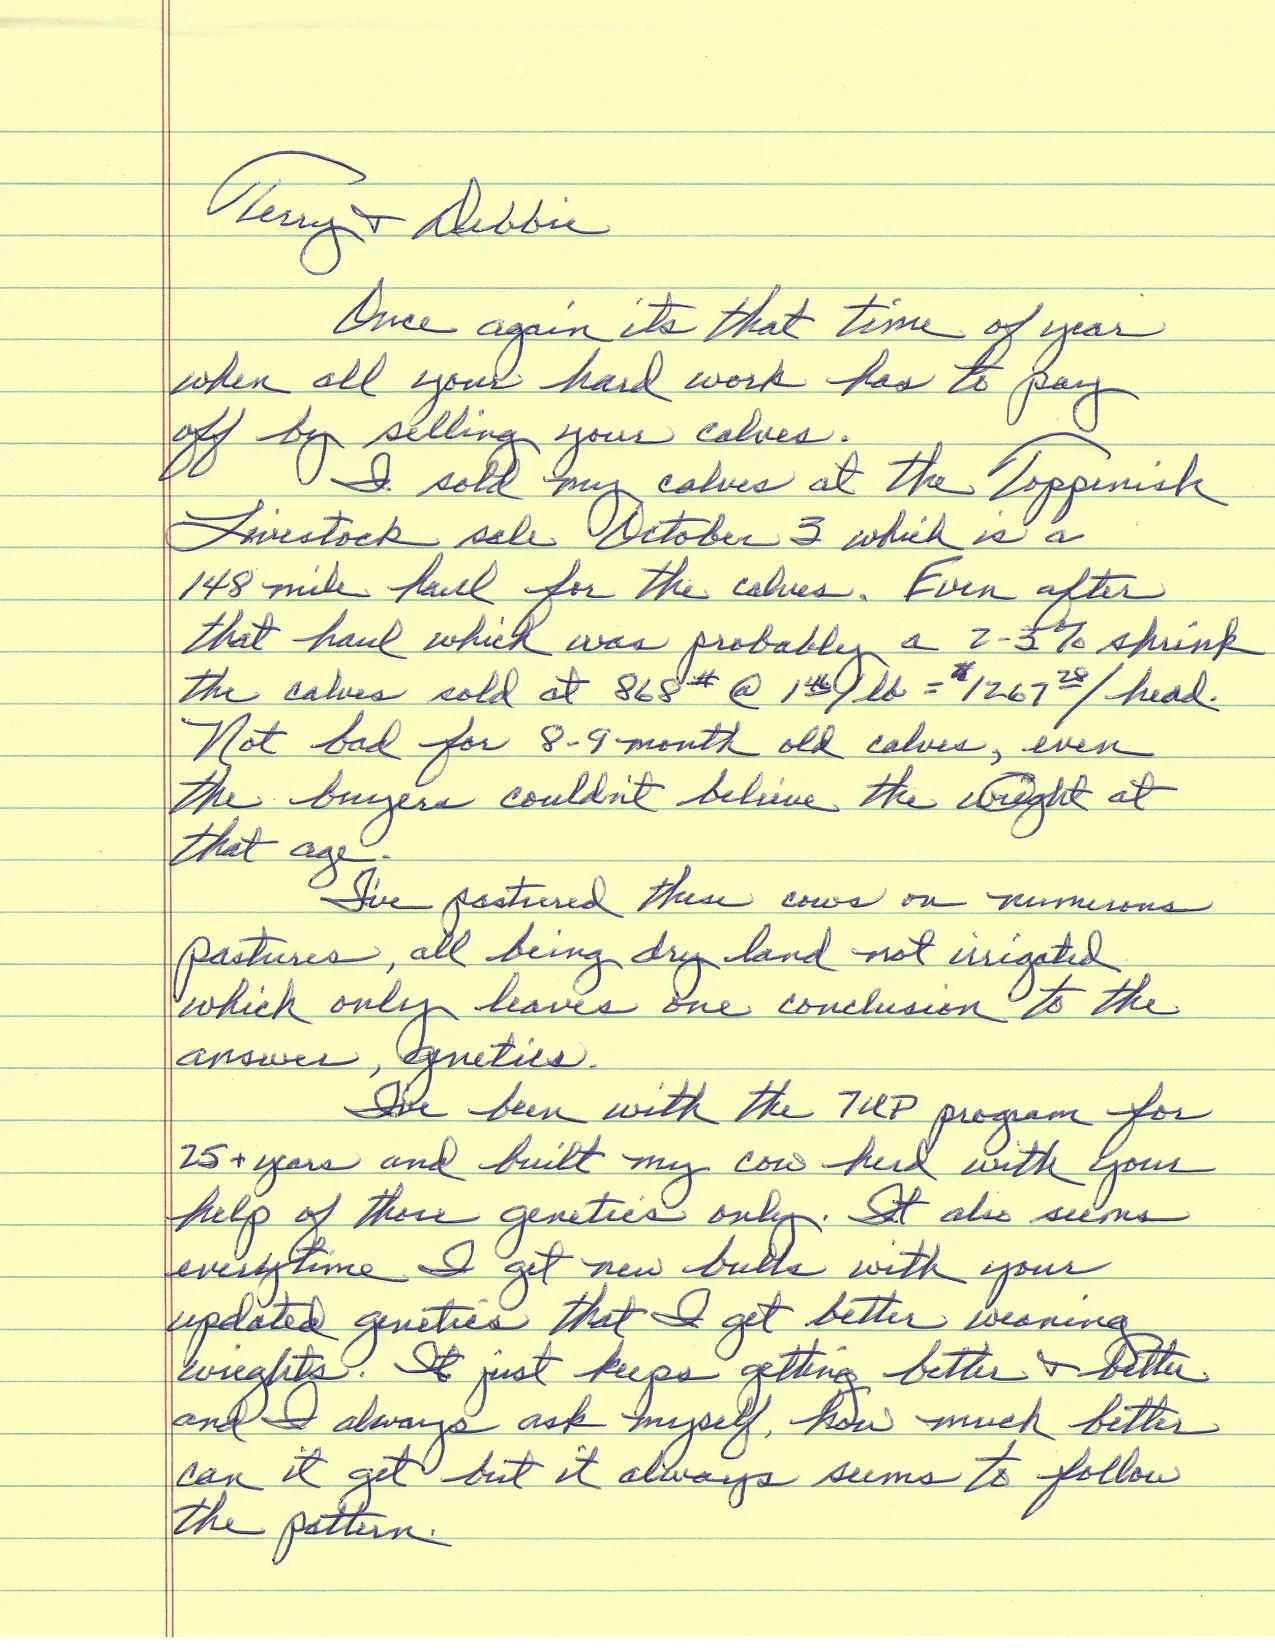 Terry & Debbie
Once again its that time of year
when all your hard work has to pay
off by selling your calves.
I sold my calves at the Toppenish
Livestock sale October 3 which is a
148 mile haul for the calves. Even after
that haul which was probably a 2-3% shrink
the calves sold at 868# @ 1.46/lb = $1267.28/head.
Not bad for 8-9 month old calves, even
the buyers couldn't believe the weight at
that age.
I've pastured these cows on numerous
pastures, all being dry land not irrigated
which only leaves one conclusion to the
answer, genetics.
I've been with the program for
25+ years and built my cow herd with your
help of those genetics only. It also seems
everytime I get new bulls with your
updated genetics that I get better weaning
wieghts. It just keeps getting better & better
and I always ask myself, how much better
can it get but it always seems to follow
the pattern.